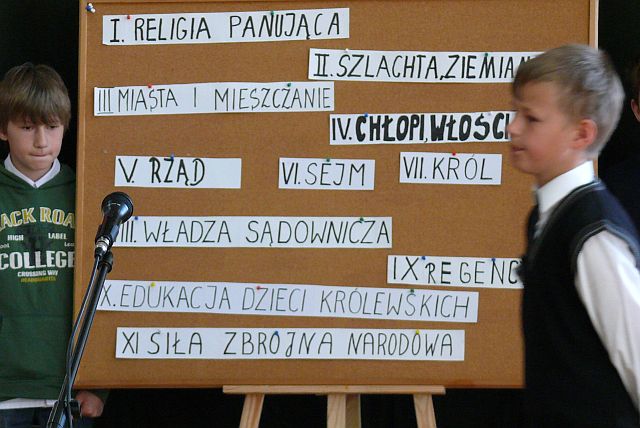 I. RELIGIA PANUJĄCA
II. SZLACHTA, ZIEMIAN
III MIASTA I MIESZCZANIE
IV. CHŁOPI, WŁOŚCI
V. RZĄD
VI. SEJM
VII. KRÓL
III. WŁADZA SĄDOWNICZA
IX REGENC
X. EDUKACJA DZIECI KRÓLEWSKICH
XI SIŁA ZBROJNA NARODOWA
ACK ROA
HIGH LABEL
COLLEGE
CROSSING WAY
HEADQUARTERS